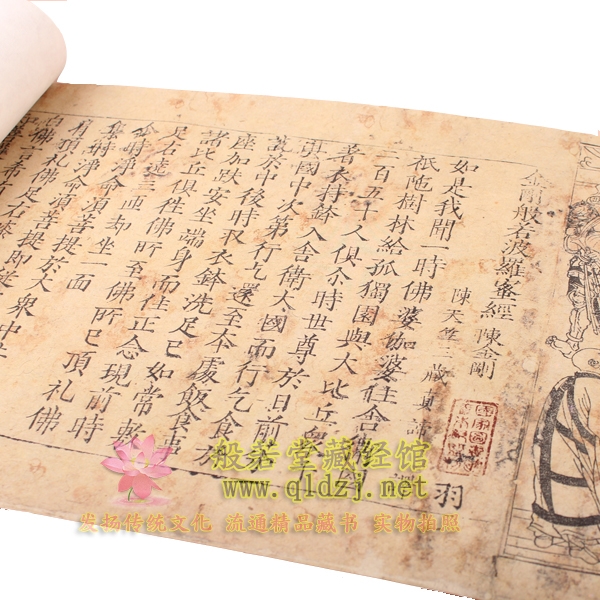 金剛般若波羅蜜經 陳金剛
陳天竺三藏真諦譯 羽
如是我聞一時佛婆伽婆住舍衛國
祇陁樹林給孤獨園與大比丘衆千
二百五十人俱尒時世尊於日前分
著衣持鉢入舍衛大國而行乞食於
其國中次第行乞還至本處飯食事
訖於中後時収衣鉢洗足已如常敷
座加趺安坐端身而住正念現前時
諸比丘俱往佛所至佛所已頂礼佛
足右遶三匝却坐一面
尒時淨命須菩提於大
衆中
有頂礼佛足右
白佛言希有
般若堂藏经馆
www.qldzj.net
发扬传统文化 流通精品藏书 实物拍照